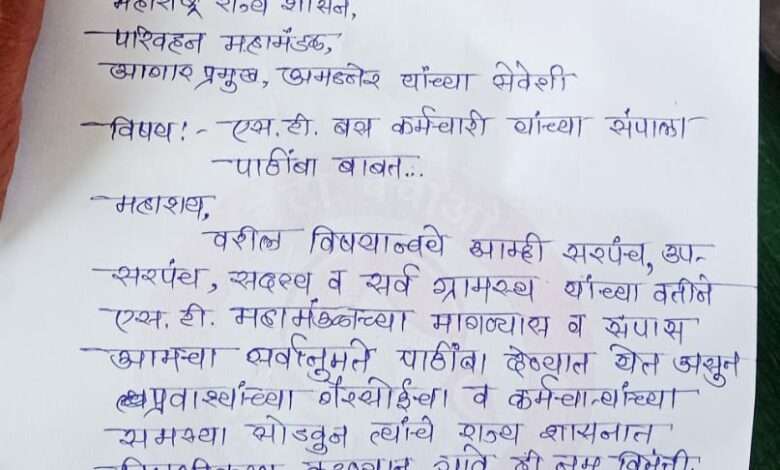 महाराष्ट्र राज्य शासन,
परिवहन महामंडळ,
आगार प्रमुख, अमळनेर यांच्या सेवेशी
विषय:- एस.टी. बस कर्मचारी यांच्या संपाला
पाठींबा बाबत...
महाशय,
वरील विषयान्वये आम्ही सरपंच, उप-
सरपंच, सदस्य व सर्व ग्रामस्थ यांच्या वतीने
एस.टी. महामंडळच्या मागण्यास व संपास
आमचा सर्वानुमते पाठींबा देण्यात येत असुन
प्रवाश्यांच्या गैरसोईचा व कर्मचाऱ्यांच्या
समस्या सोडवुन त्यांचे राज्य शासनात
करण्यात यावे ही नम्र विनंती